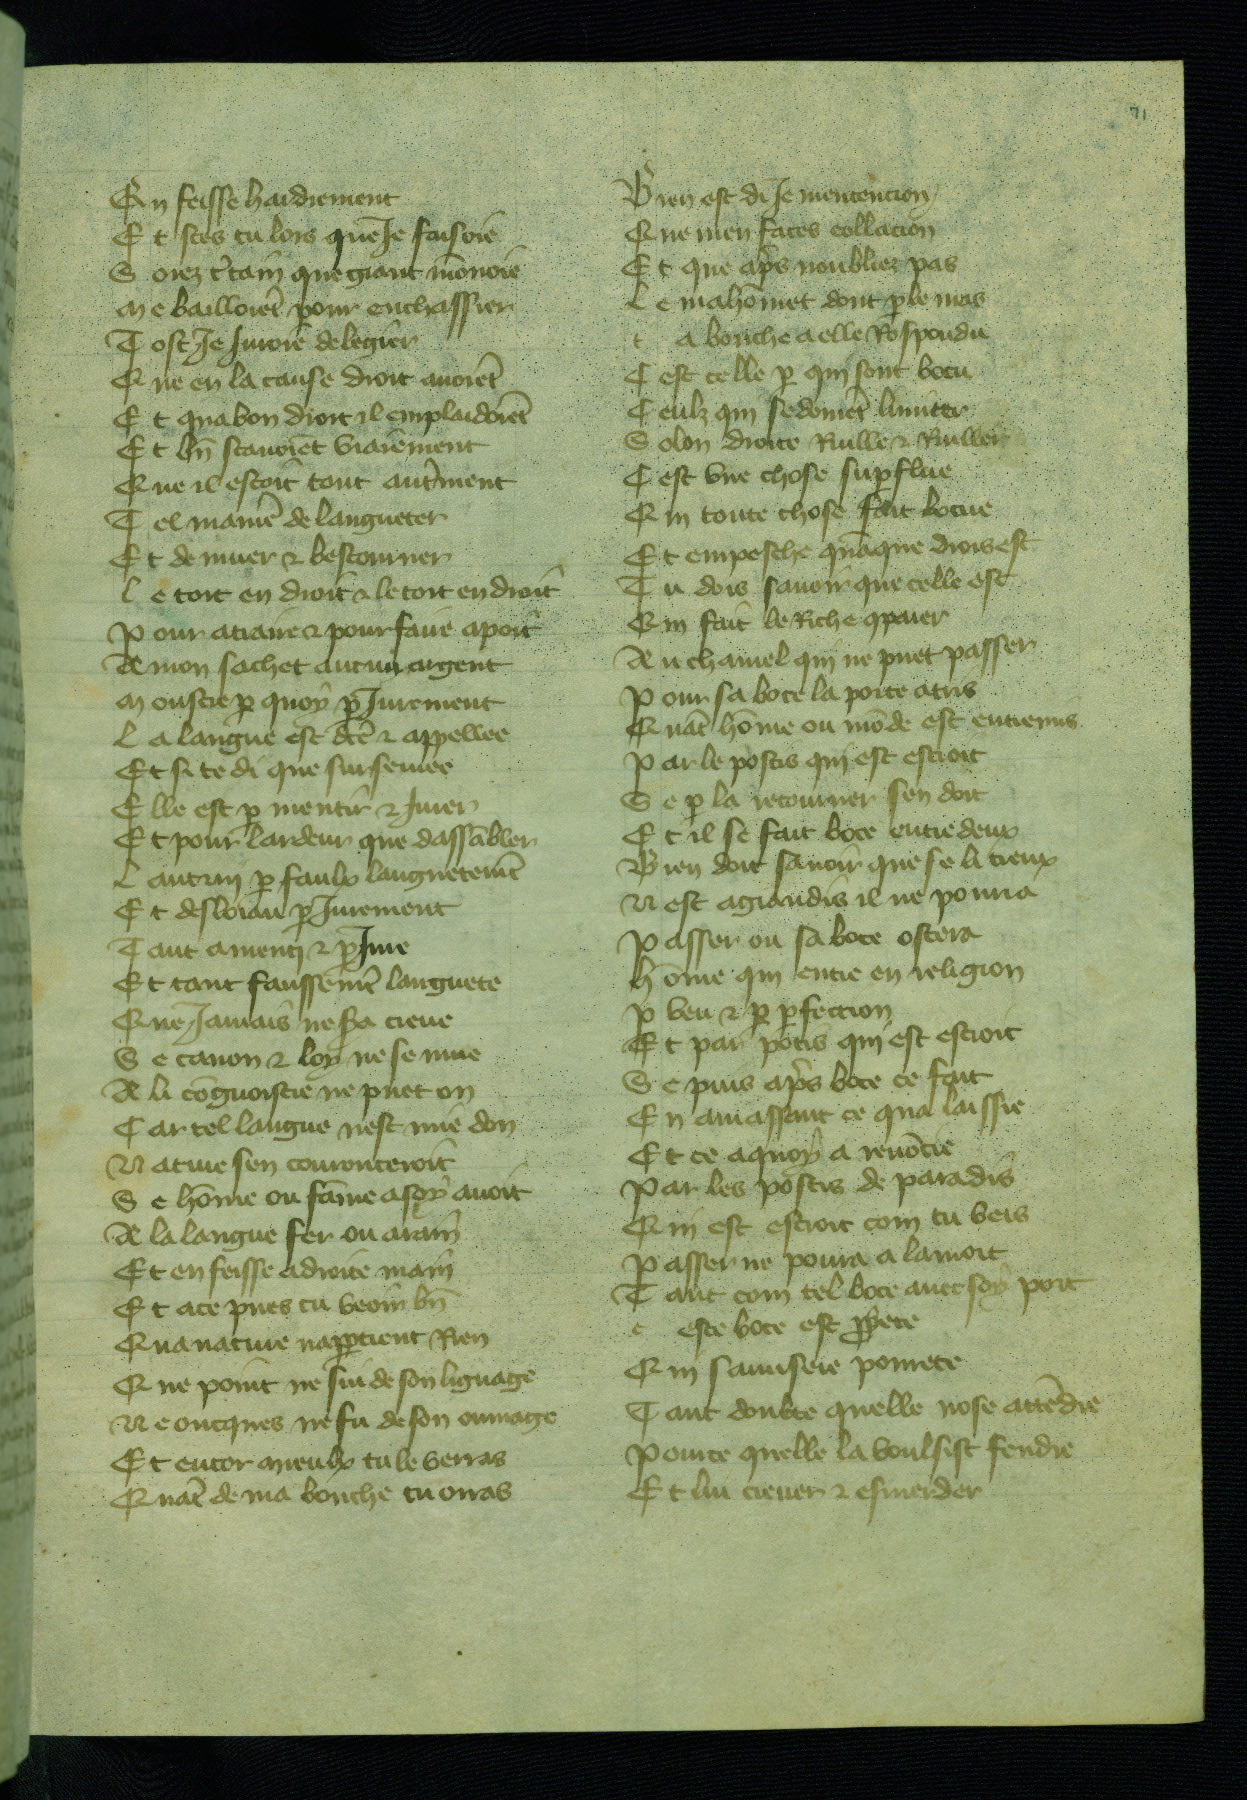 71
En feisse hardiement
Et sces tu lors que Je faisoie
Soiez c'tain que grant monoie
Me bailloiet pour enchassier
Tost Je Juroie de legier
Que en la cause droit avoiet
Et qua bon droit il emplaidoiet
Et bn scavoiet vraiement
Que il estoit tout autrment
Tel manie de langueter
Et de muer & bestourner
Le tort en droit & le tort en droit
Pour atraire & pour faire aport
A mon sachet aucun argent
Monstre p quoy pJurement
La langue est dce & appellee
Et si te di que sursemee
Elle est p mentir & Jurer
Et pour lardeur que dassabler
Lautrui p faulx languetemt
Et desloiau pJurement
Tant a menti & pJure
Et tant faussemt languete
Que Jamais ne sera creue
Se canon & loy ne se mue
A li cognoistre ne puet on
Car tel langue nest mie don
Nature sen courouceroit
Se home ou fame a soy avoit
A la langue fer ou arain
Et en feisse a droite main
Et a ce pues tu veoir bn
Qua nature nappartient Rien
Que point ne sui de son lignage
Ne oncques ne fu de son ouvrage
Et encor mieulx tu le verras
Quat de ma bouche tu orras
Bien est di Je mentencion
Que men faces collacion
Et que aps noubliez pas
Le mahommet dont p le mas
t a bouche a elle Respondu
Cest celle p qui sont bocu
Ceulz qui se doivet limiter
Solon droite Rulle & Ruller
Cest une chose supflue
Qui toute chose fait bocue
Et empesche quaque drois est
Tu dois savoir que celle est
Qui fait le Riche gparer
Au chamel qui ne puet passer
Pour sa boce la porte atris
Quat home ou mode est entremis
Par le postis qui est estroit
Se p la retourner sen doit
Et il se fait boce entre deux
Bien doit savoir que se li creux
Nest agrandis il ne pourra
Passer ou sa boce ostera
home qui entre en religion
P veu & p pfection
Et par potis qui est estroit
Se puis aps boce ce fait
En amassant ce qua laissie
Et ce a quoy a renocie
Par les postis de paradis
Qui est estroit com tu veis
Passer ne pourra a la mort
Tant com tel boce avec soy port
c este boce est
Qui sa misere pourete
Tant doubte quelle nose attedre
Pource quelle la voulsist fendre
Et lui crever & esmerder